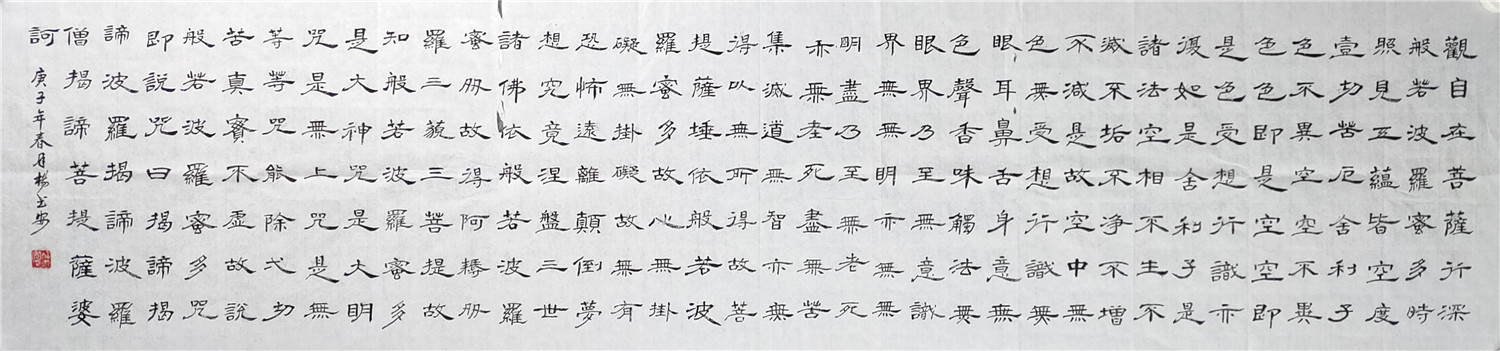 觀自在菩薩行深
般若波羅蜜多時
照見五蘊皆空度
壹切苦厄舍利子
色不異空空不異
色色即是空空即
是色受想行識亦
復如是舍利子是
諸法空相不生不
滅不垢不淨不增
不減是故空中無
色無受想行識無
眼耳鼻舌身意無
色聲香味觸法無
眼界乃至無意識
界無無明亦無無
明盡乃至無老死
亦無老死盡無苦
集滅道無智亦無
得以無所得故菩
提薩埵依般若波
羅蜜多故心無掛
礙無掛礙故無有
恐怖遠離顛倒夢
想究竟涅盤三世
諸佛依般若波羅
蜜多故得阿耨多
羅三藐三菩提故
知般若波羅蜜多
是大神咒是大明
咒是無上咒是無
等等咒能除弌切
苦真實不虛故說
般若波羅蜜多咒
即說咒曰揭諦揭
諦波羅揭諦波羅
僧揭諦菩提薩婆
訶
庚子年春月